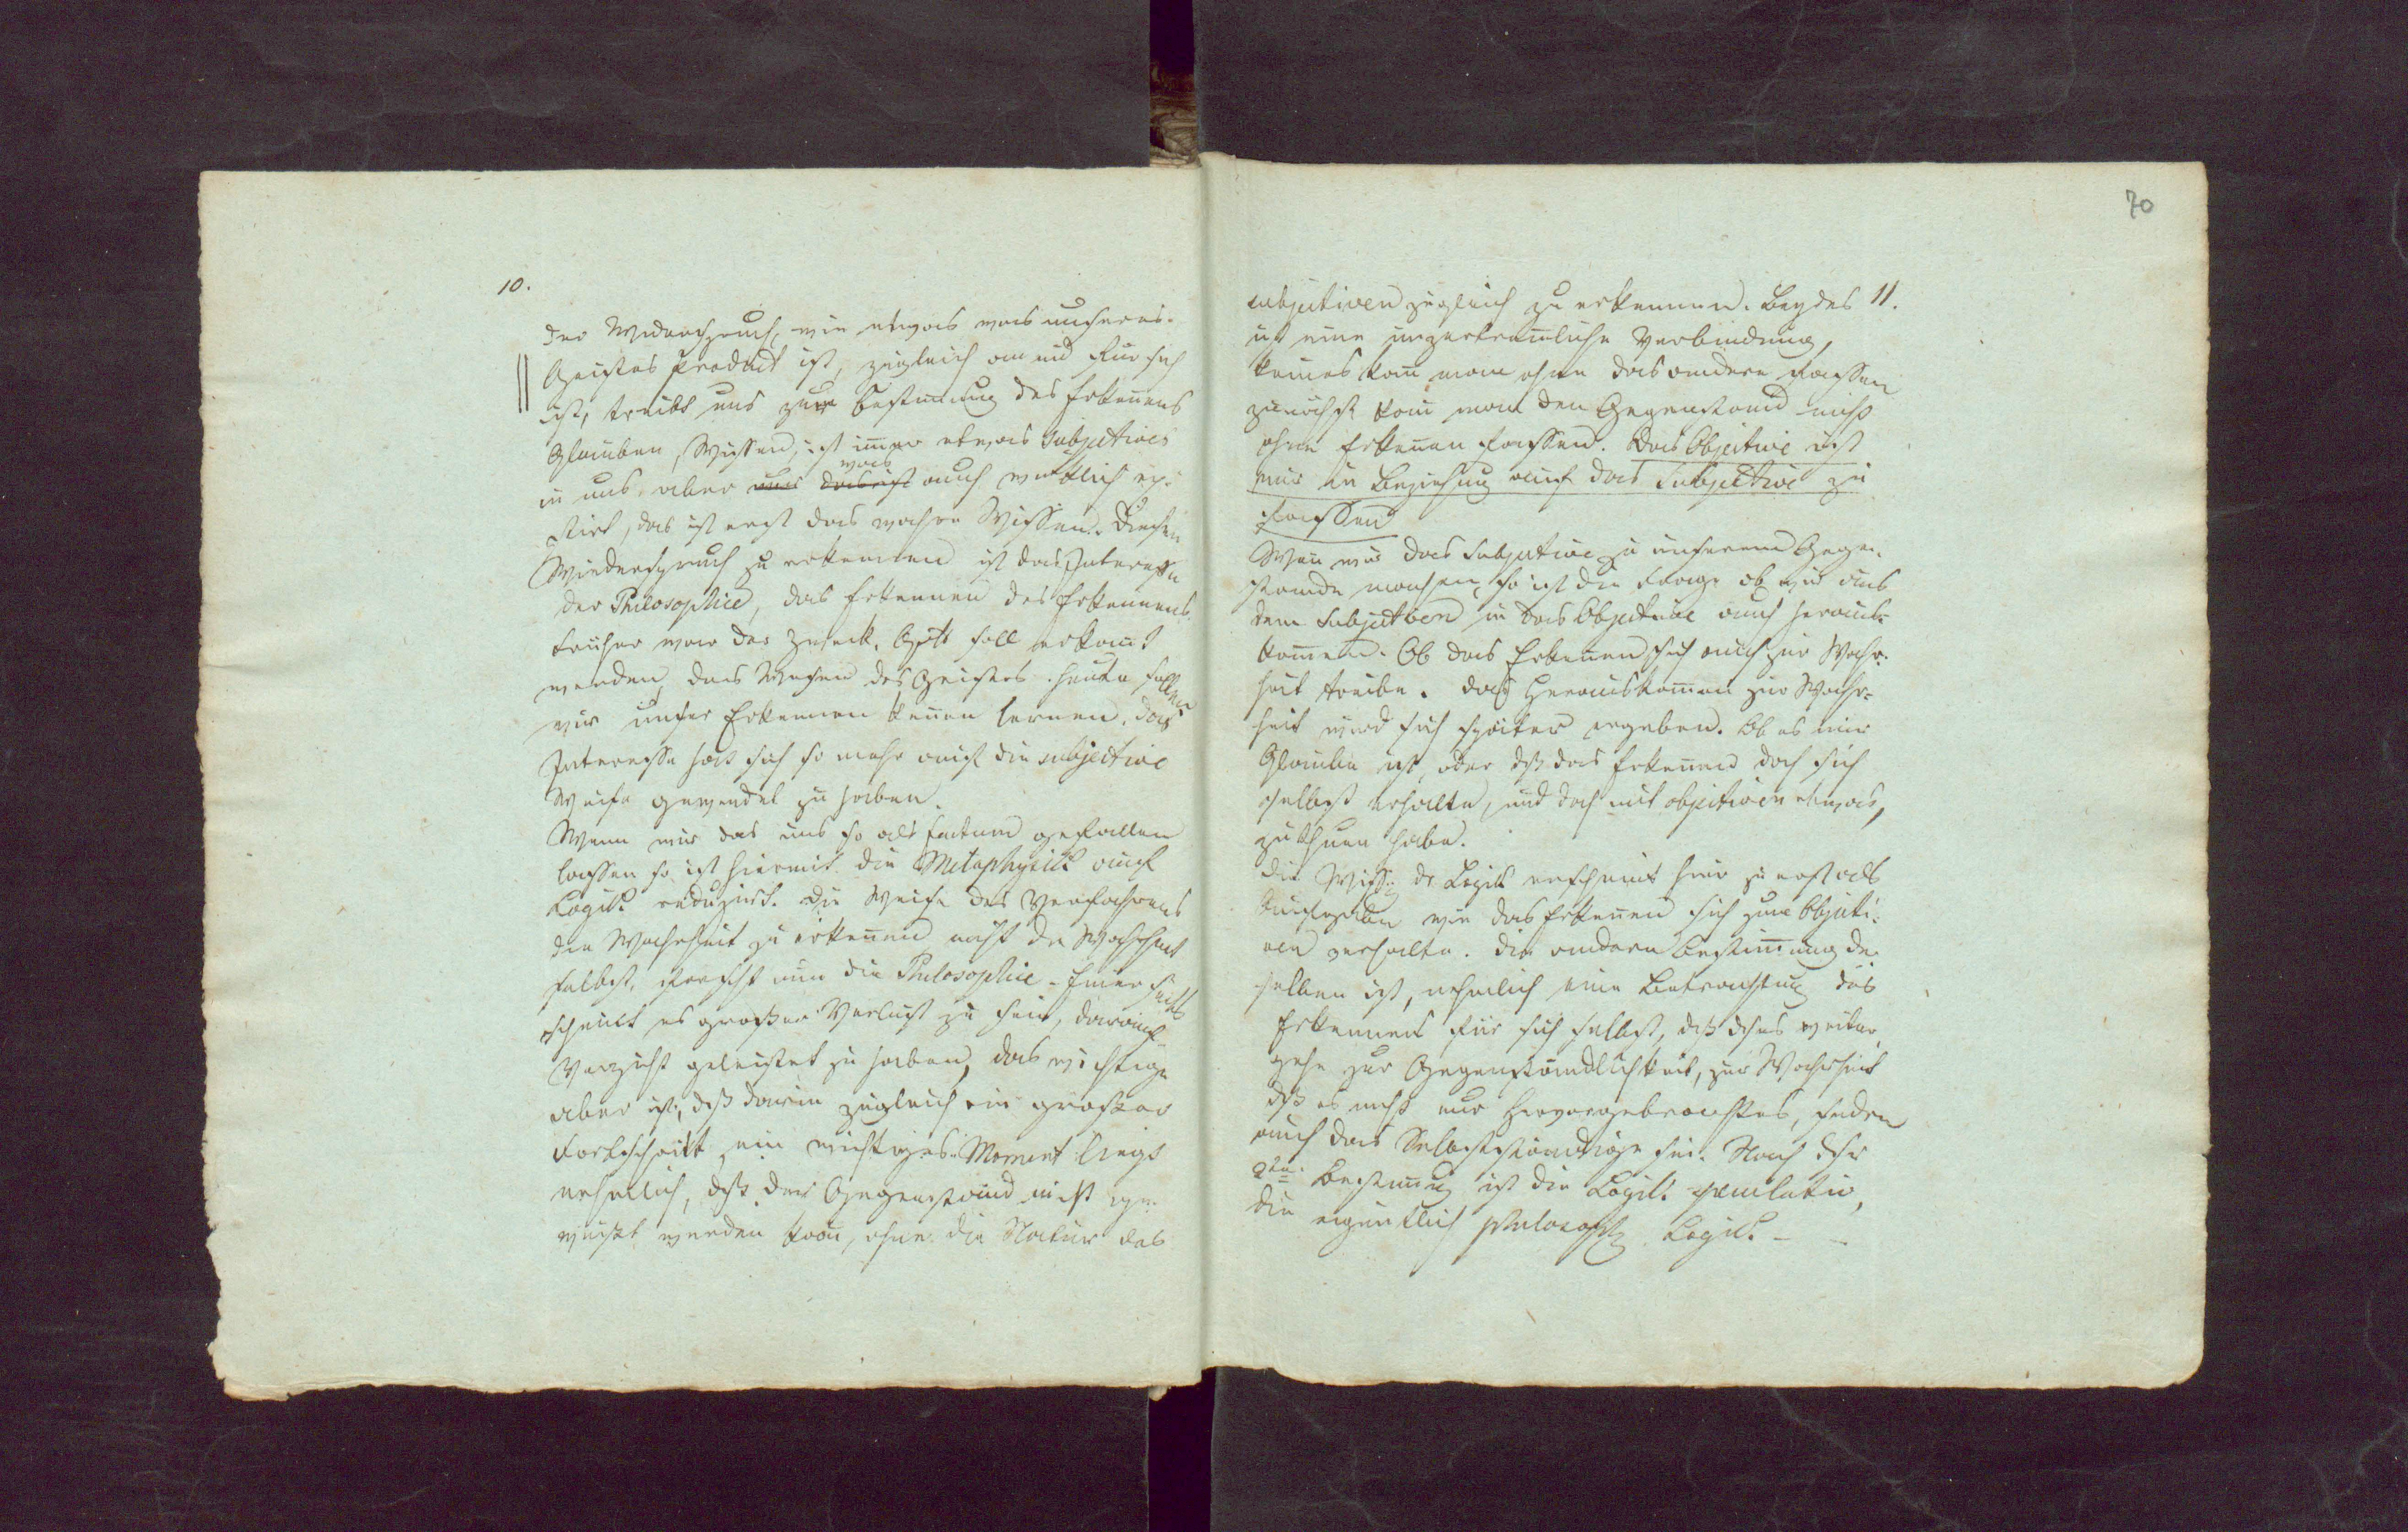 10.
Der Widerspruch, wie etwas was unseres
Geistes Product ist, zugleich an und für sich
ist, treibt uns zur Bestim̅ung des Erken̅ens
Glauben, Wissen, ist im̅er etwas Subjectives
was
in uns, aber auch wirklich exi-
stirt, das ist erst das wahre Wissen. Diesen
Wiederspruch zu erkennen ist das Interesse
der Philosophie, das Erkennen des Erkennens.
Früher war der Zweck, Gott soll erkan̅t
werden, das Wesen des Geistes. Heute sollen
wir unser Erkennen ken̅en lernen. Das
Interesse hat sich so mehr auf die subjective
Weise gewendet zu haben.
Wenn wir das uns so als factum gefallen
lassen so ist hiermit die Metaphysik auf
Logik reduzirt. Die Weise des Verfahrens
die Wahrheit zu erken̅en nicht die Wahrheit
selbst, erforscht nun die Philosophie. Einer seits
scheint es großer Verlust zu sein, darauf
Verzicht geleistet zu haben, das wichtige
aber ist, daß darin zugleich ein großer
Fortschritt, ein wichtiges Moment liegt
nehmlich, daß der Gegenstand nicht ge-
wußt werden kan̅, ohne die Natur des
70
11.
subjectiven zugleich zu erkennen. Beydes
ist eine unzertren̅liche Verbindung,
keines kan̅ man ohne das andere fassen
zunächst kan̅ man den Gegenstand nicht
ohne Erken̅en fassen. Das Objective ist
nur in Beziehung auf das Subjective zu
fassen
Wen̅ wir das Subjective zu unserem Gegen-
stande machen, so ist die Frage ob wir aus
dem Subjectiven in das Objective auch heraus-
kom̅en. Ob das Erkennen sich auch zur Wahr-
heit treibe. Das Herauskom̅en zur Wahr-
heit wird sich später ergeben. Ob es nur
Glaube ist, oder daß das Erken̅en doch sich
selbst erhalte, und doch mit objectiven etwas,
zu thuen habe.
Die Wiss. der Logik erscheint hier zuerst als
wie das Erken̅en sich zum Objecti-
ven verhalte. Die andere Bestim̅ung der-
selben ist, nehmlich eine Betrachtung des
Erkennens für sich selbst, daß dses weiter
gehe zur Gegenständlichkeit, zur Wahrheit
daß es nicht nur Hervorgebrachtes, sondern
auch das Selbstständige sei. Nach dser
2ten Bestim̅ung ist die Logik speculativ,
die eigentlich philosoph. Logik – –